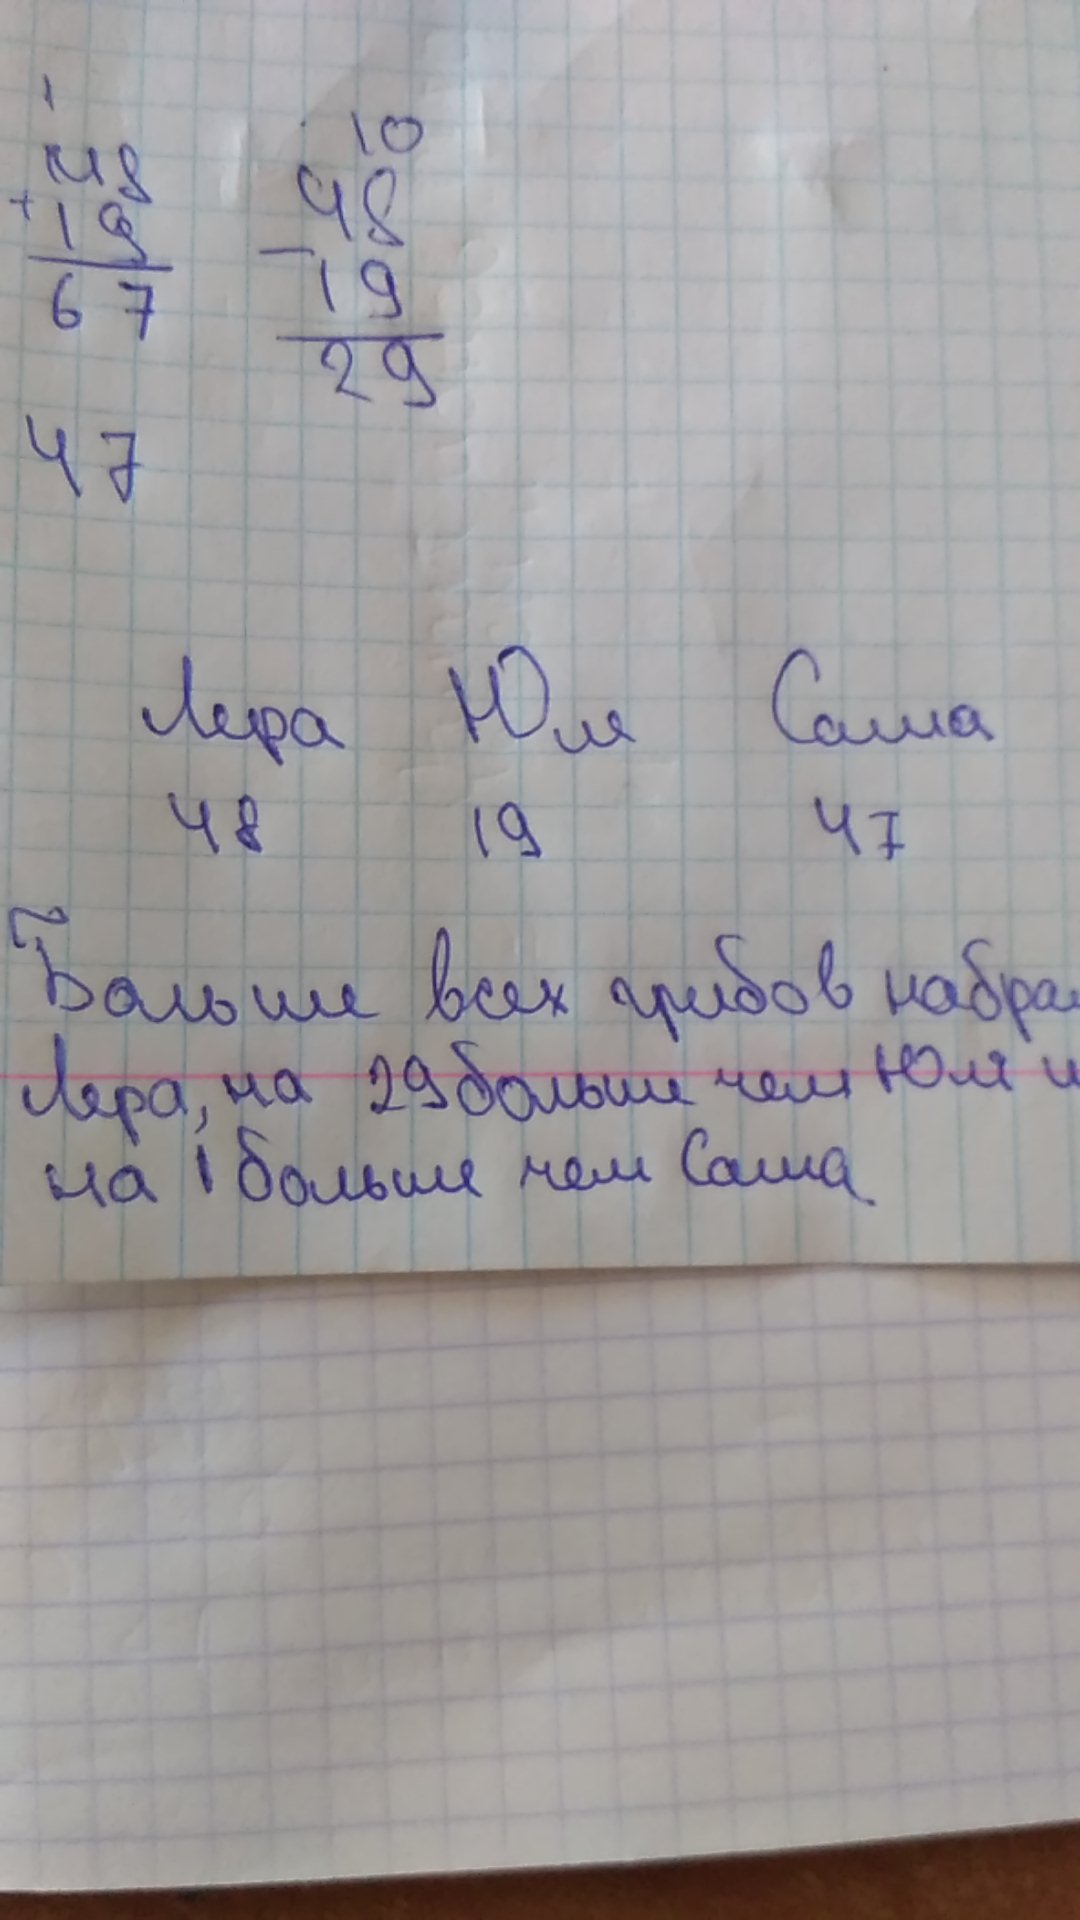 1
48
+ 19
67
47
10
48
− 19
29
Лера Юля Саша
48 19 47
Больше всех грибов набрал
Лера, на 29 больше чем Юля и
на 1 больше чем Саша.